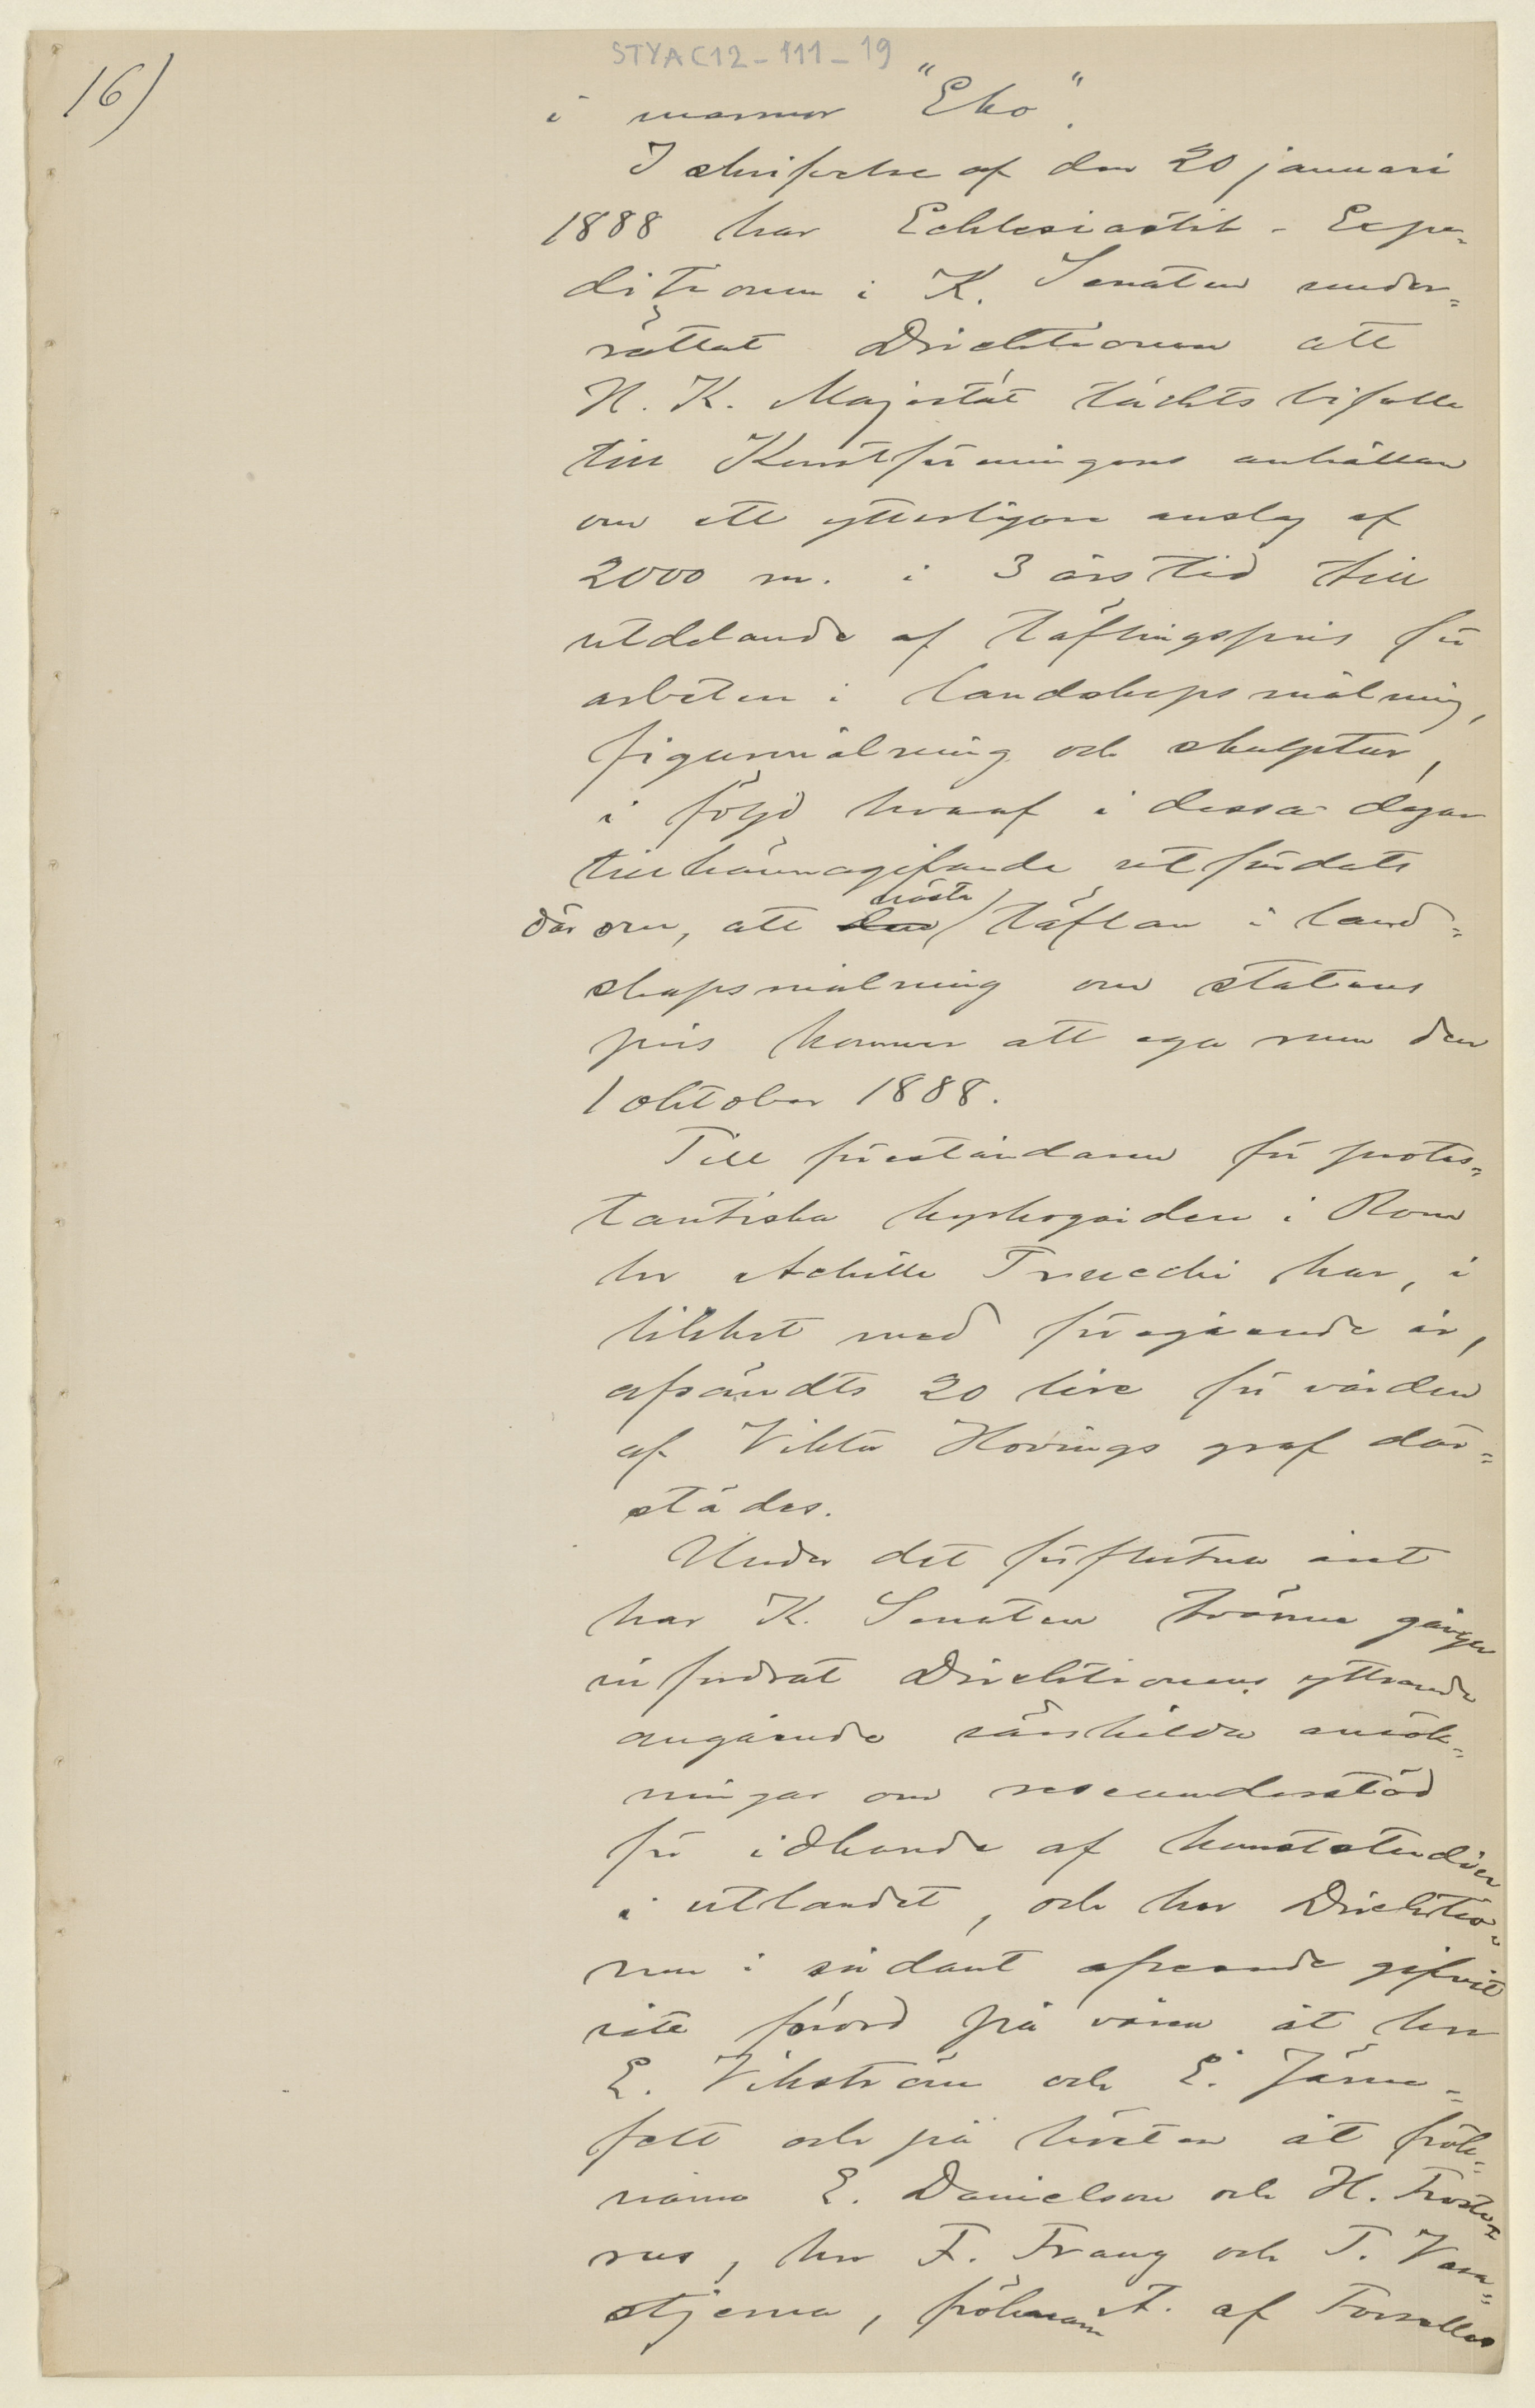 STYAC12-111-19
16)
i marmor "Eko".
I skrifvelse af den 20 januari
1888 har Ecklesiastik-Expe-
ditionen i K. Senaten under-
rättat Direktionen att
H. K. Majestät täckts bifalla
till Konstföreningens anhållan
om ett ytterligare anslag af
2000 m. i 3 års tid till
utdelande af täflingspris för
arbeten i landskapsmålning,
figurmålning och skulptur,
i följd hvaraf i dessa dagar
tillkännagifvande utfärdats
därom, att den nästa täflan i land-
skapsmålning om statens
pris kommer att ega rum den
1 oktober 1888.
Till föreståndaren för protes-
tantiska kyrkogården i Rom
hr Achille Trucchi har, i
likhet med föregående år,
afsändts 20 lire för vården
af Viktor Hovings graf där-
städes.
Under det förflutna året
har K. Senaten tvänne gånger
infordrat Direktionens yttrande
angående särskilda ansök-
ningar om reseunderstöd
för idkande af konststudier
i utlandet, och har Direktio-
nen i sådant afseende gifvit
sitt förord på våren åt hrr
E. Vikström och E. Järne-
felt och på hösten åt frök-
narna E. Danielson och H. Froste-
rus, hrr F. Frang och T. Vaen-
stjerna, fröknarna A. af Forselles